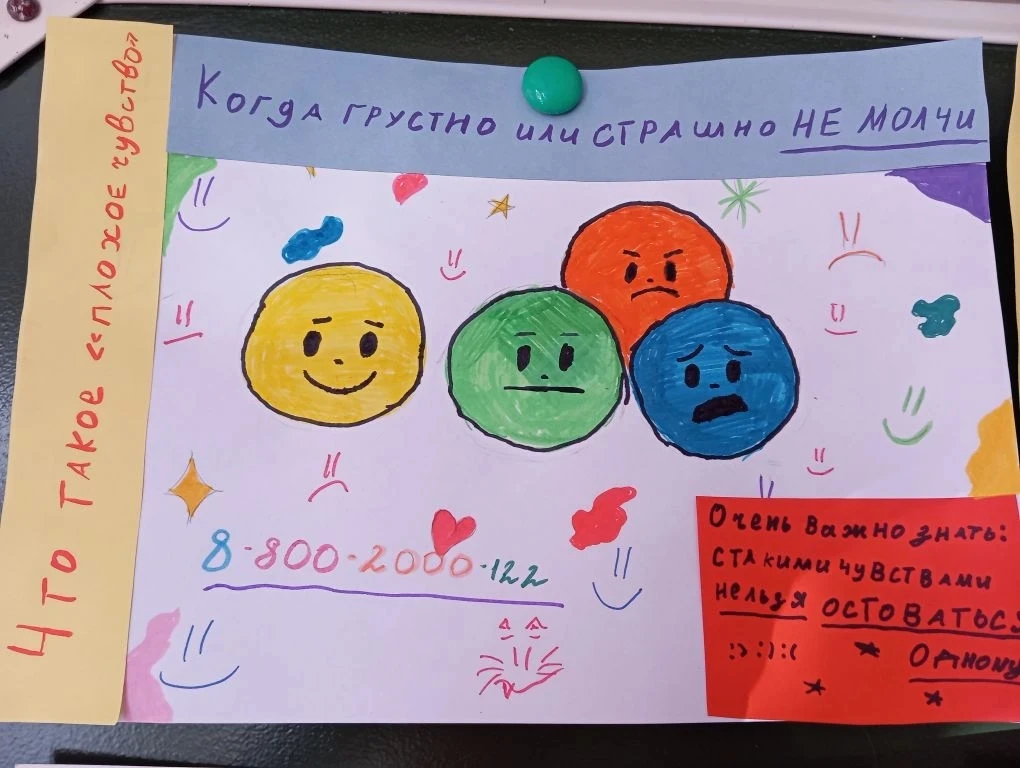 Что такое «плохое чувство»
Когда грустно или страшно НЕ МОЛЧИ
8-800-2000-122
Очень важно знать:
с такими чувствами
нельзя остоваться
одному
:):):(